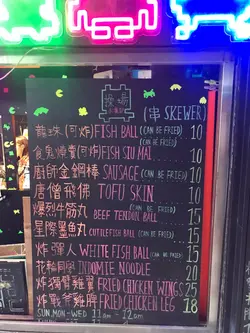 (串 SKEWER)
龍珠(可炸)FISH BALL (CAN BE FRIED) 10
食鬼燒賣(可炸)FISH SIU MAI (CAN BE FRIED) 10
廚師金鋼棒 SAUSAGE (CAN BE FRIED) 10
唐僧飛佛 TOFU SKIN 10
爆烈牛筋丸 BEEF TENDON BALL (CAN BE FRIED) 15
星際墨魚丸 CUTTLEFISH BALL (CAN BE FRIED) 15
炸彈人 WHITE FISH BALL (CAN BE FRIED) 15
花輪同學 INDOMIE NOODLE 20
炸獨臂雞翼 FRIED CHICKEN WINGS 25
炸戰斧雞髀 FRIED CHICKEN LEG 18
SUN, MON-WED 11am - 12am